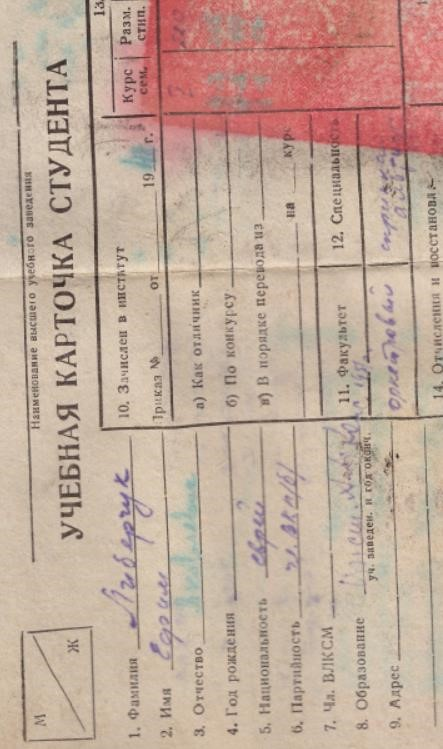 Наименование высшего учебного заведения
УЧЕБНАЯ КАРТОЧКА СТУДЕНТА
М
Ж
1. Фамилия Либерчук
2. Имя Ефраим
3. Отчество
4. Год рождения
5. Национальность еврей
6. Партийность чл. ВКП(б)
7. Чл. ВЛКСМ
8. Образование
уч. заведен. и год оконч.
9. Адрес
10. Зачислен в институт
Приказ № от 19 г.
а) Как отличник
б) По конкурсу
в) В порядке перевода из
на курс
11. Факультет
оркестровый
12. Специальность
скрипка
13.
Курс сем.
Разм. стип.
14. Отчисления и восстановл.